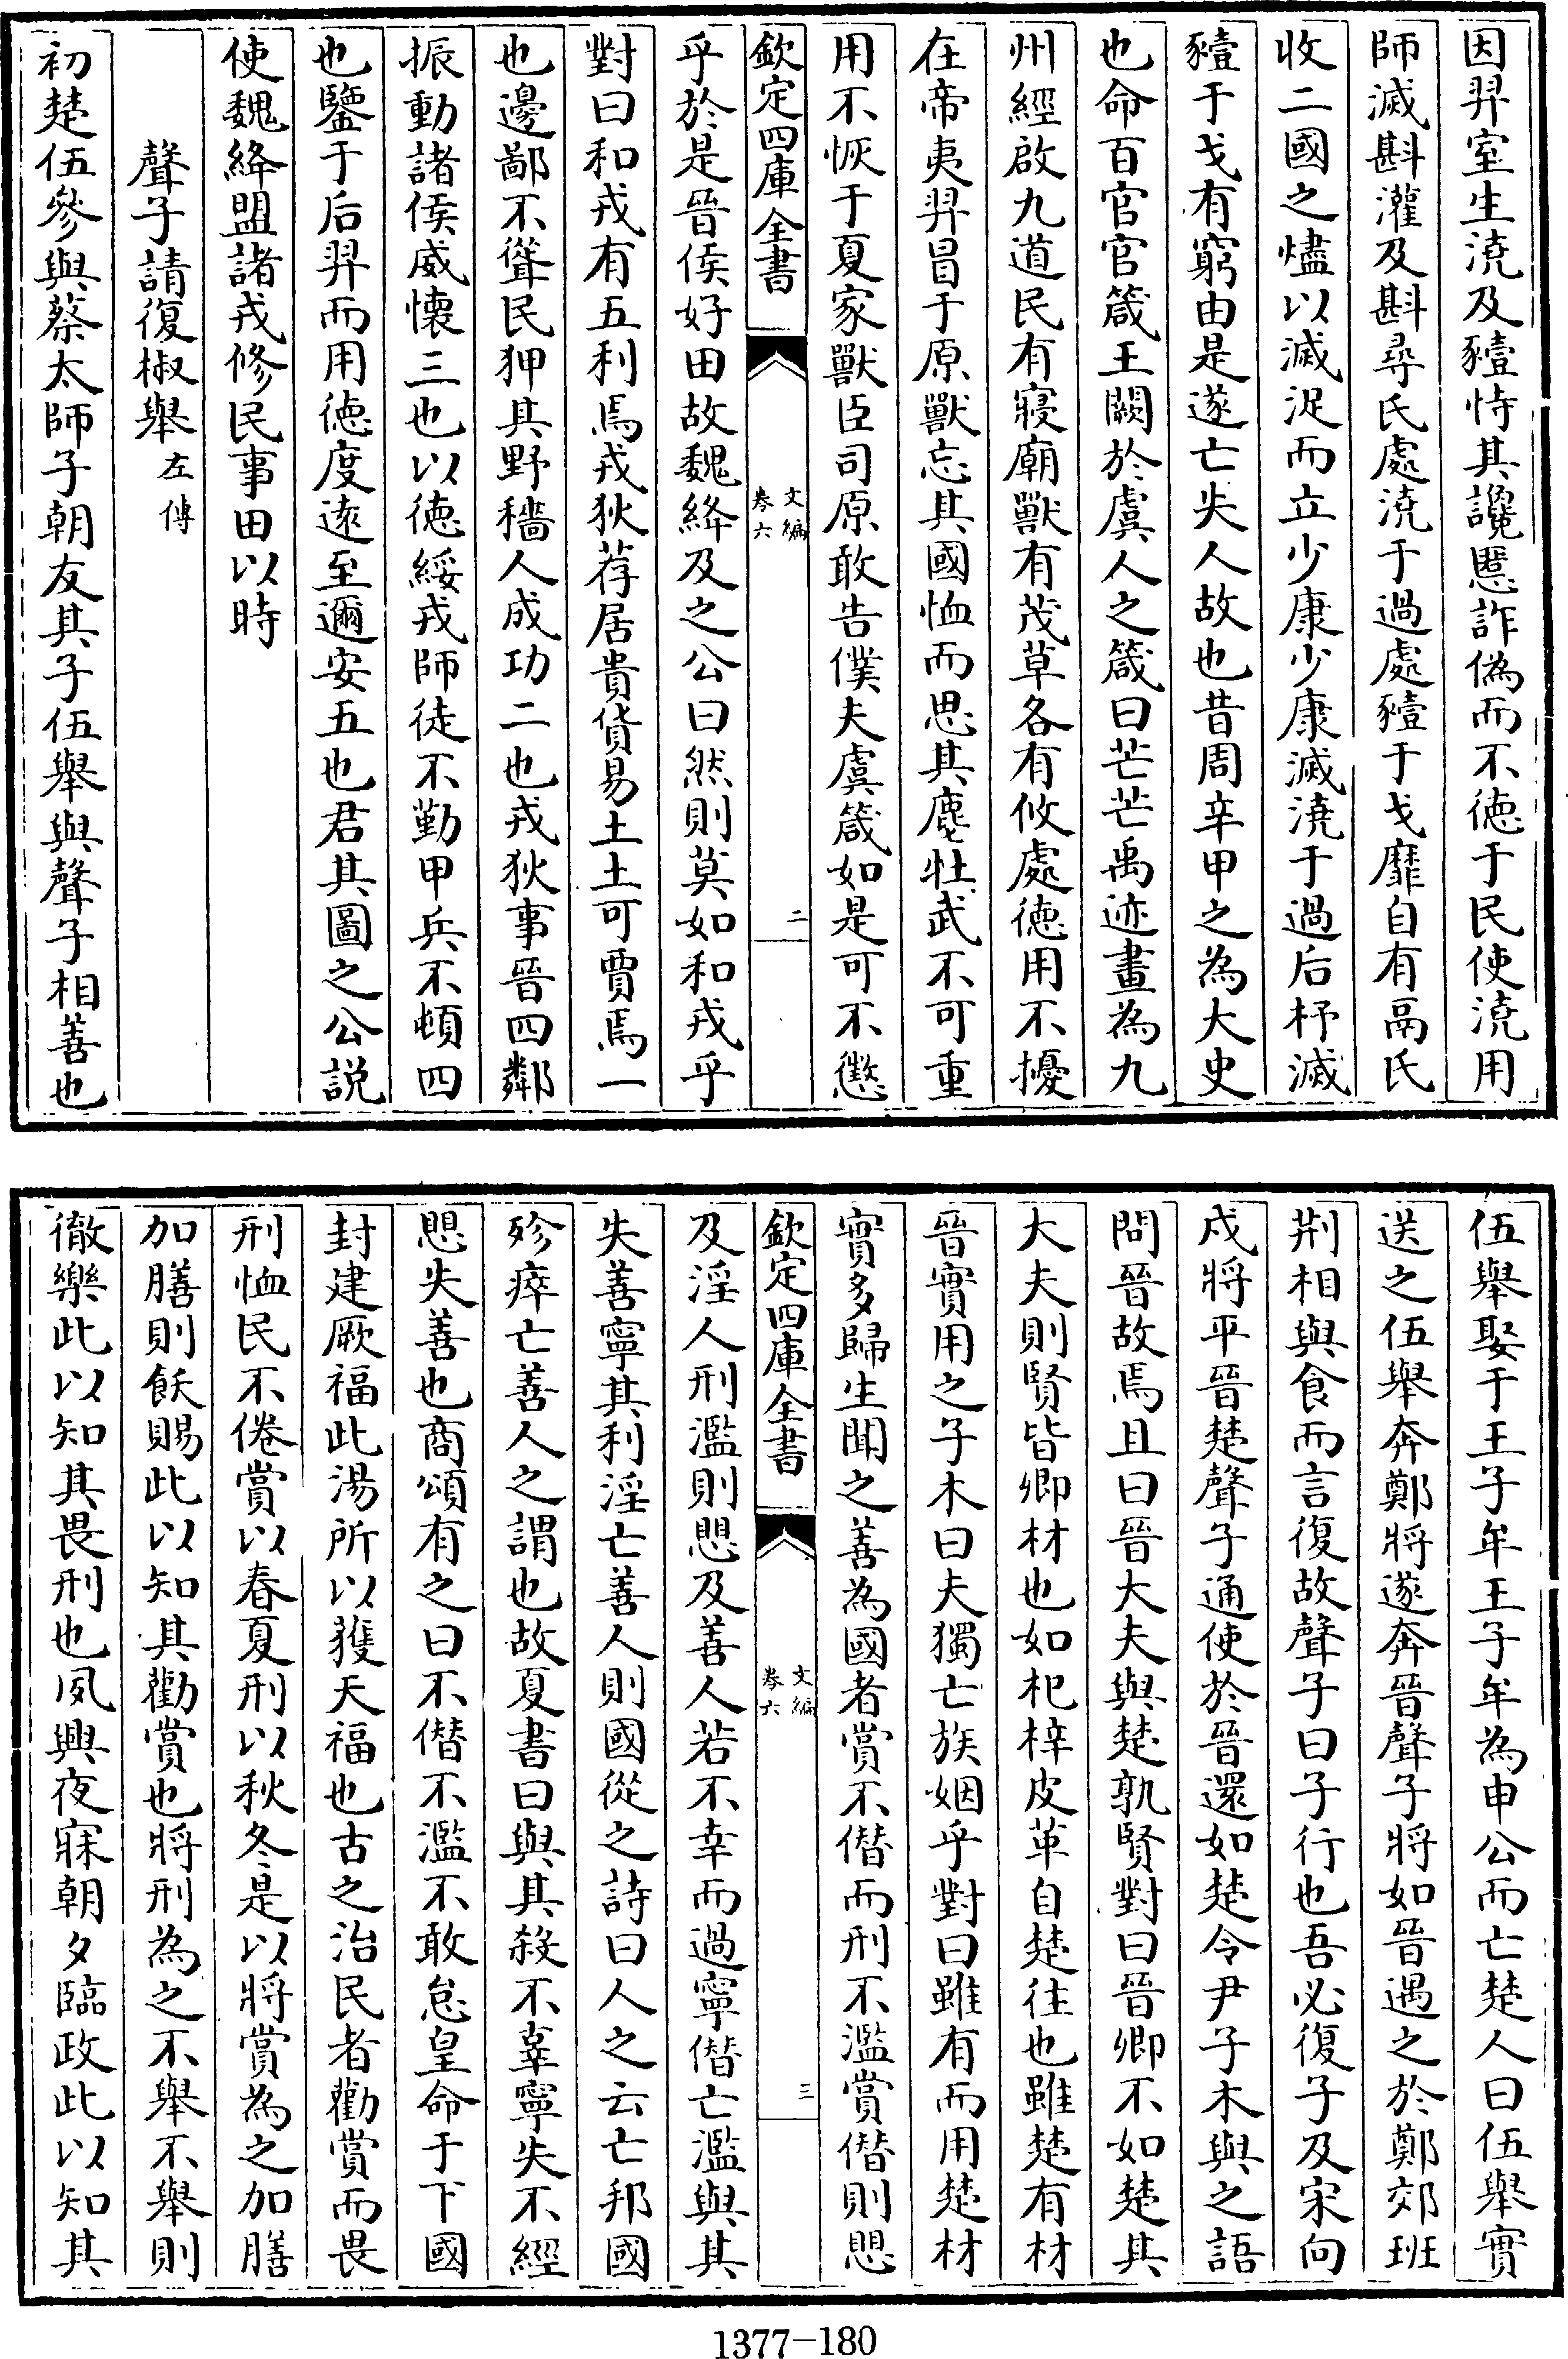 因羿室生澆及豷恃其讒慝詐偽而不徳于民使澆用
師滅斟灌及斟尋氏處澆于過處豷于戈靡自有鬲氏
收二國之燼以滅浞而立少康少康滅澆于過后杼滅
豷于戈有窮由是遂亡失人故也昔周辛甲之為大史
也命百官官箴王闕於虞人之箴曰芒芒禹迹畫為九
州經啟九道民有寢廟獸有茂草各有攸處徳用不擾
在帝夷羿冒于原獸忘其國恤而思其麀牡武不可重
用不恢于夏家獸臣司原敢告僕夫虞箴如是可不懲
欽定四庫全書
文編
卷六
二
乎於是晉侯好田故魏絳及之公曰然則莫如和戎乎
對曰和戎有五利焉戎狄荐居貴貨易土土可賈焉一
也邊鄙不聳民狎其野穡人成功二也戎狄事晉四鄰
振動諸侯威懷三也以徳綏戎師徒不勤甲兵不頓四
也鑒于后羿而用徳度逺至邇安五也君其圖之公説
使魏絳盟諸戎修民事田以時
聲子請復椒舉左傳
初楚伍參與蔡太師子朝友其子伍舉與聲子相善也
伍舉娶于王子牟王子牟為申公而亡楚人曰伍舉實
送之伍舉奔鄭將遂奔晉聲子將如晉遇之於鄭郊班
荆相與食而言復故聲子曰子行也吾必復子及宋向
戌將平晉楚聲子通使於晉還如楚令尹子木與之語
問晉故焉且曰晉大夫與楚孰賢對曰晉卿不如楚其
大夫則賢皆卿材也如杞梓皮革自楚往也雖楚有材
晉實用之子木曰夫獨亡族姻乎對曰雖有而用楚材
實多歸生聞之善為國者賞不僭而刑不濫賞僭則愳
欽定四庫全書
文編
卷六
三
及淫人刑濫則愳及善人若不幸而過寧僭亡濫與其
失善寧其利淫亡善人則國從之詩曰人之云亡邦國
殄瘁亡善人之謂也故夏書曰與其殺不辜寧失不經
愳失善也商頌有之曰不僭不濫不敢怠皇命于下國
封建厥福此湯所以獲天福也古之治民者勸賞而畏
刑恤民不倦賞以春夏刑以秋冬是以將賞為之加膳
加膳則飫賜此以知其勸賞也將刑為之不舉不舉則
徹樂此以知其畏刑也夙興夜寐朝夕臨政此以知其
1377-180